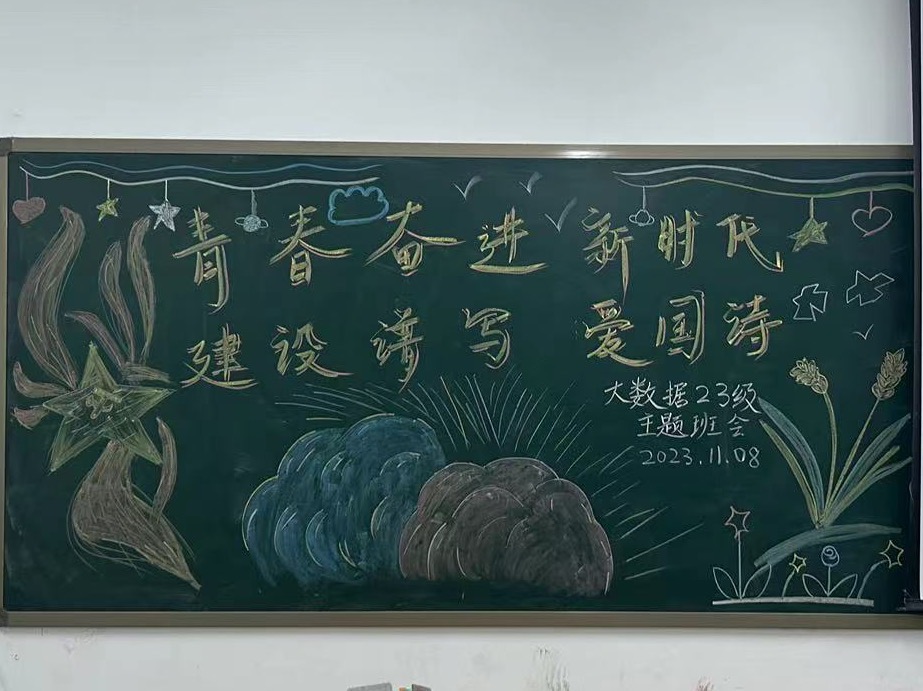 青春奋进 新时代
建设谱写 爱国诗
大数据23级
主题班会
2023.11.08